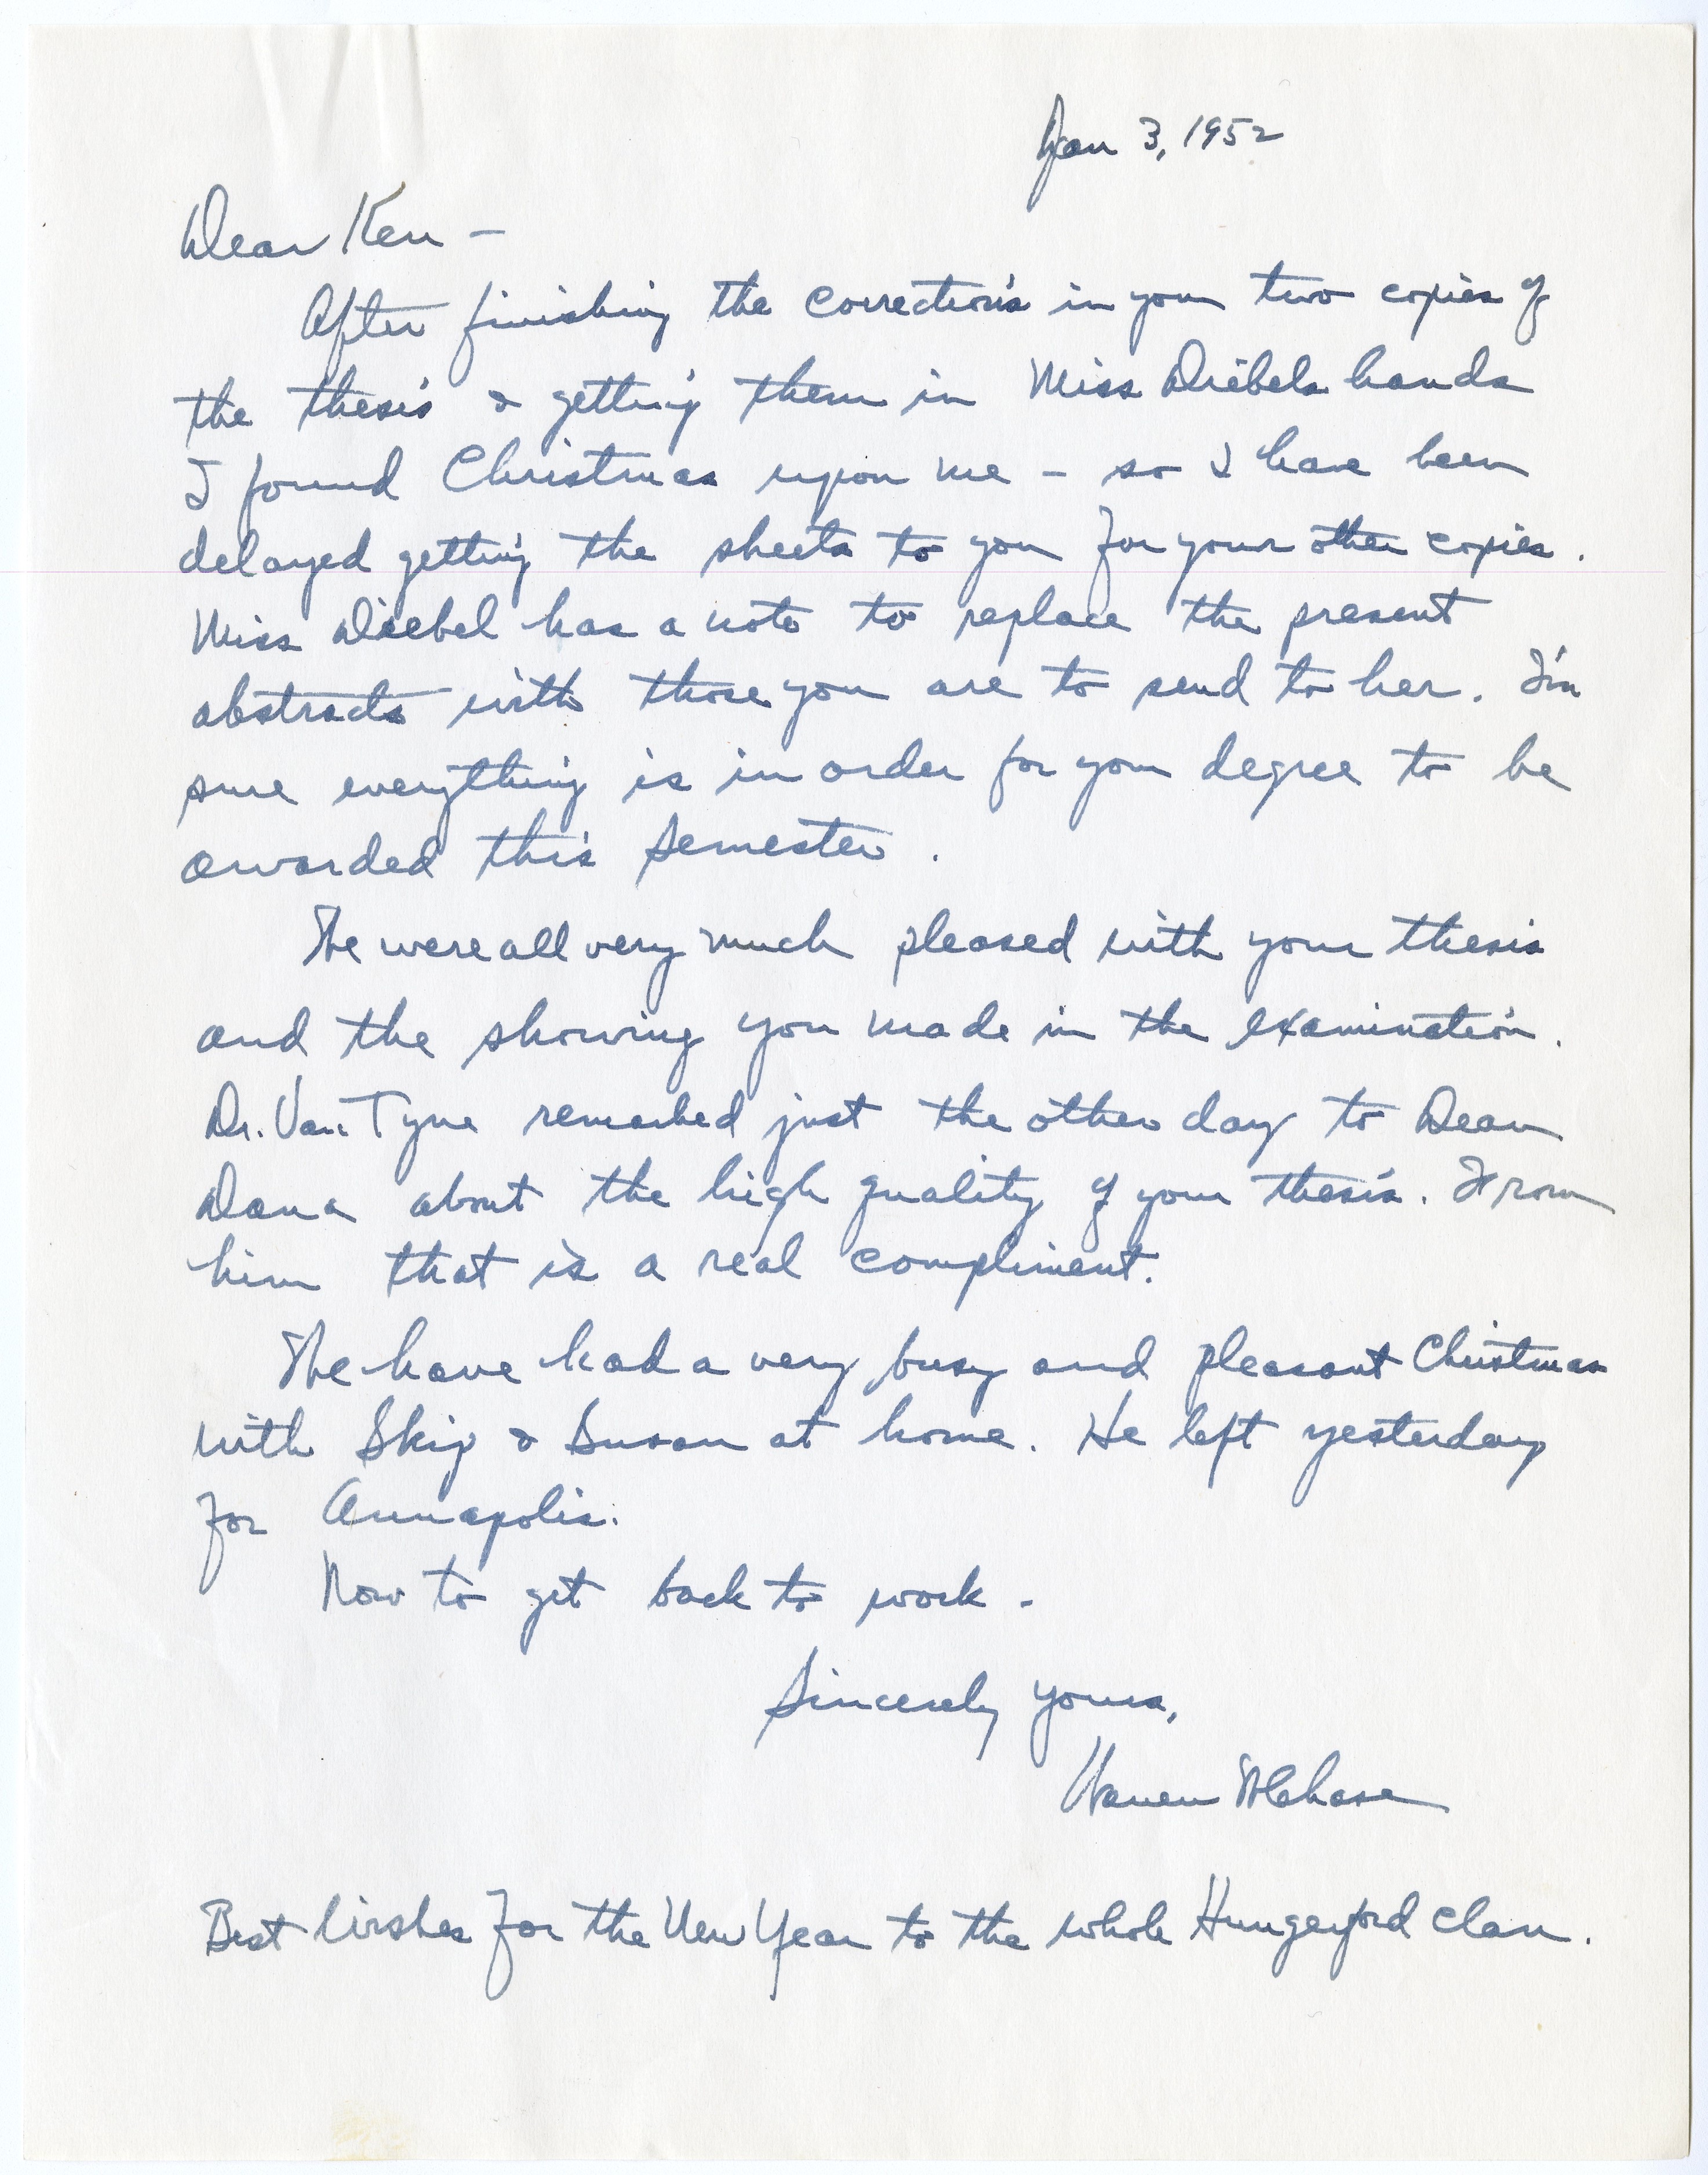 Jan 3, 1952
Dear Ken –
After finishing the corrections in your two copies of
the thesis & getting them in Miss Driebels hands
I found Christmas upon me – so I have been
delayed getting the sheets to you for your other copies.
Miss Driebel has a note to replace the present
abstracts with those you are to send to her. I'm
sure everything is in order for your degree to be
awarded this semester.
We were all very much pleased with your thesis
and the showing you made in the examination.
Dr. Van Tyne remarked just the other day to Dean
Dana about the high quality of your thesis. From
him that is a real compliment.
We have had a very busy and pleasant Christmas
with Skip & Susan at home. He left yesterday
for Annapolis.
Now to get back to work.
Sincerely yours,
Warren W Chase
Best Wishes for the New Year to the whole Hungerford clan.